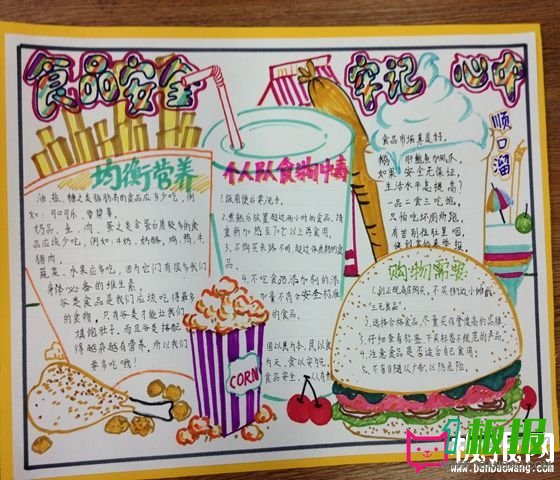 食品安全 牢记心中
均衡营养
油、盐、糖之类脂肪高的食品应少吃，例
如：可口可乐、薯
奶品、鱼、肉、蛋之类含蛋白质较多的食
品应该少吃，例如：牛奶、奶酪、鸡、鸭、牛
猪肉。
蔬菜、水果应多吃，因为它们有很多我们
身体必备的维生素
谷类食品是我们应该吃得最多
的食物，只有谷类才能让我们
填饱肚子，而且谷类搭配
得越杂越有营养，所以我们
要多吃哦！
食物中毒
1、饭前便后要洗手。
2、煮熟后放置超过两小时的食品，请
重新加热至70℃以上再食用。
3、不购买来路不明、超过保质期的食
品。
4、不吃食品添加剂的添
加量不符合安全标准
的食品。
国以民为本，民以食
为天，食以安为先，
食品安全，人人有责
CORN
顺口溜
食品市场真是好，
如果安全无保证，
生活水平怎提高？
一品二尝三吃饱，
只怕吃坏厕所跑，
有苦别往肚里咽，
购物需要
1、到正规商店购买，不买街边小摊的
"三无食品"。
2、选择合格食品，尽量买信誉度高的品牌。
3、仔细查看标签，不买标签不规范的产品。
4、注意食品是否适合自己食用；
5、不盲目随从广告，以防危险。
板报
板报网
www.banbaowang.com